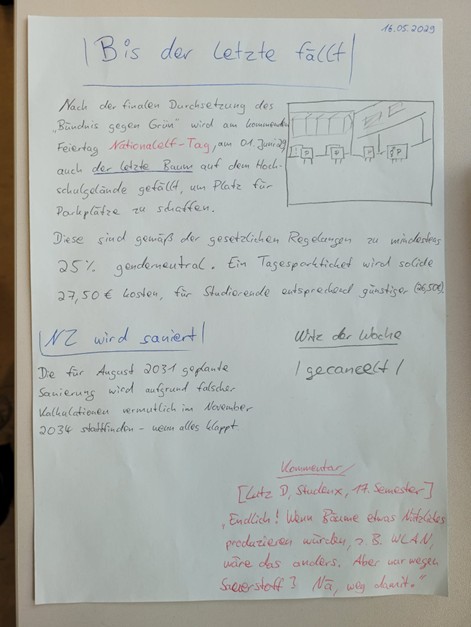 16.05.2029
Bis der letzte fällt
Nach der finalen Durchsetzung des
„Bündnis gegen Grün" wird am kommenden
Feiertag Nationalelf-Tag, am 01. Juni 29
auch der letzte Baum auf dem Hoch-
schulgelände gefällt, um Platz für
Parkplätze zu schaffen.
Diese sind gemäß der gesetzlichen Regelungen zu mindestens
25% genderneutral. Ein Tagesparkticket wird solide
27,50 € kosten, für Studierende entsprechend günstiger (26,50€)
NZ wird saniert
Die für August 2031 geplante
Sanierung wird aufgrund falscher
Kalkulationen vermutlich im November
2034 stattfinden - wenn alles klappt.
Witz der Woche
gecancelt
Kommentar
[Lutz D, Studenx, 17. Semester]
„Endlich! Wenn Bäume etwas Nützliches
produzieren würden, z. B. WLAN,
wäre das anders. Aber nur wegen
Sauerstoff? Nä, weg damit."